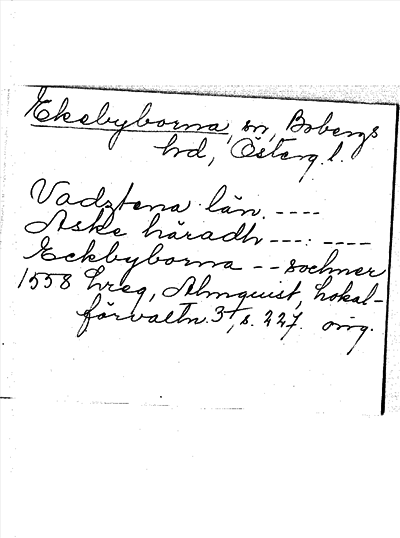 Ekebyborna, sn, Bobergs
hd, Österg. l.
Vadztena län. ----
Aske häradh ---: ----
Eckbyborna -- sochner
1558 hreg, Almquist, Lokal-
förvaltn. 3, s. 227. orig.